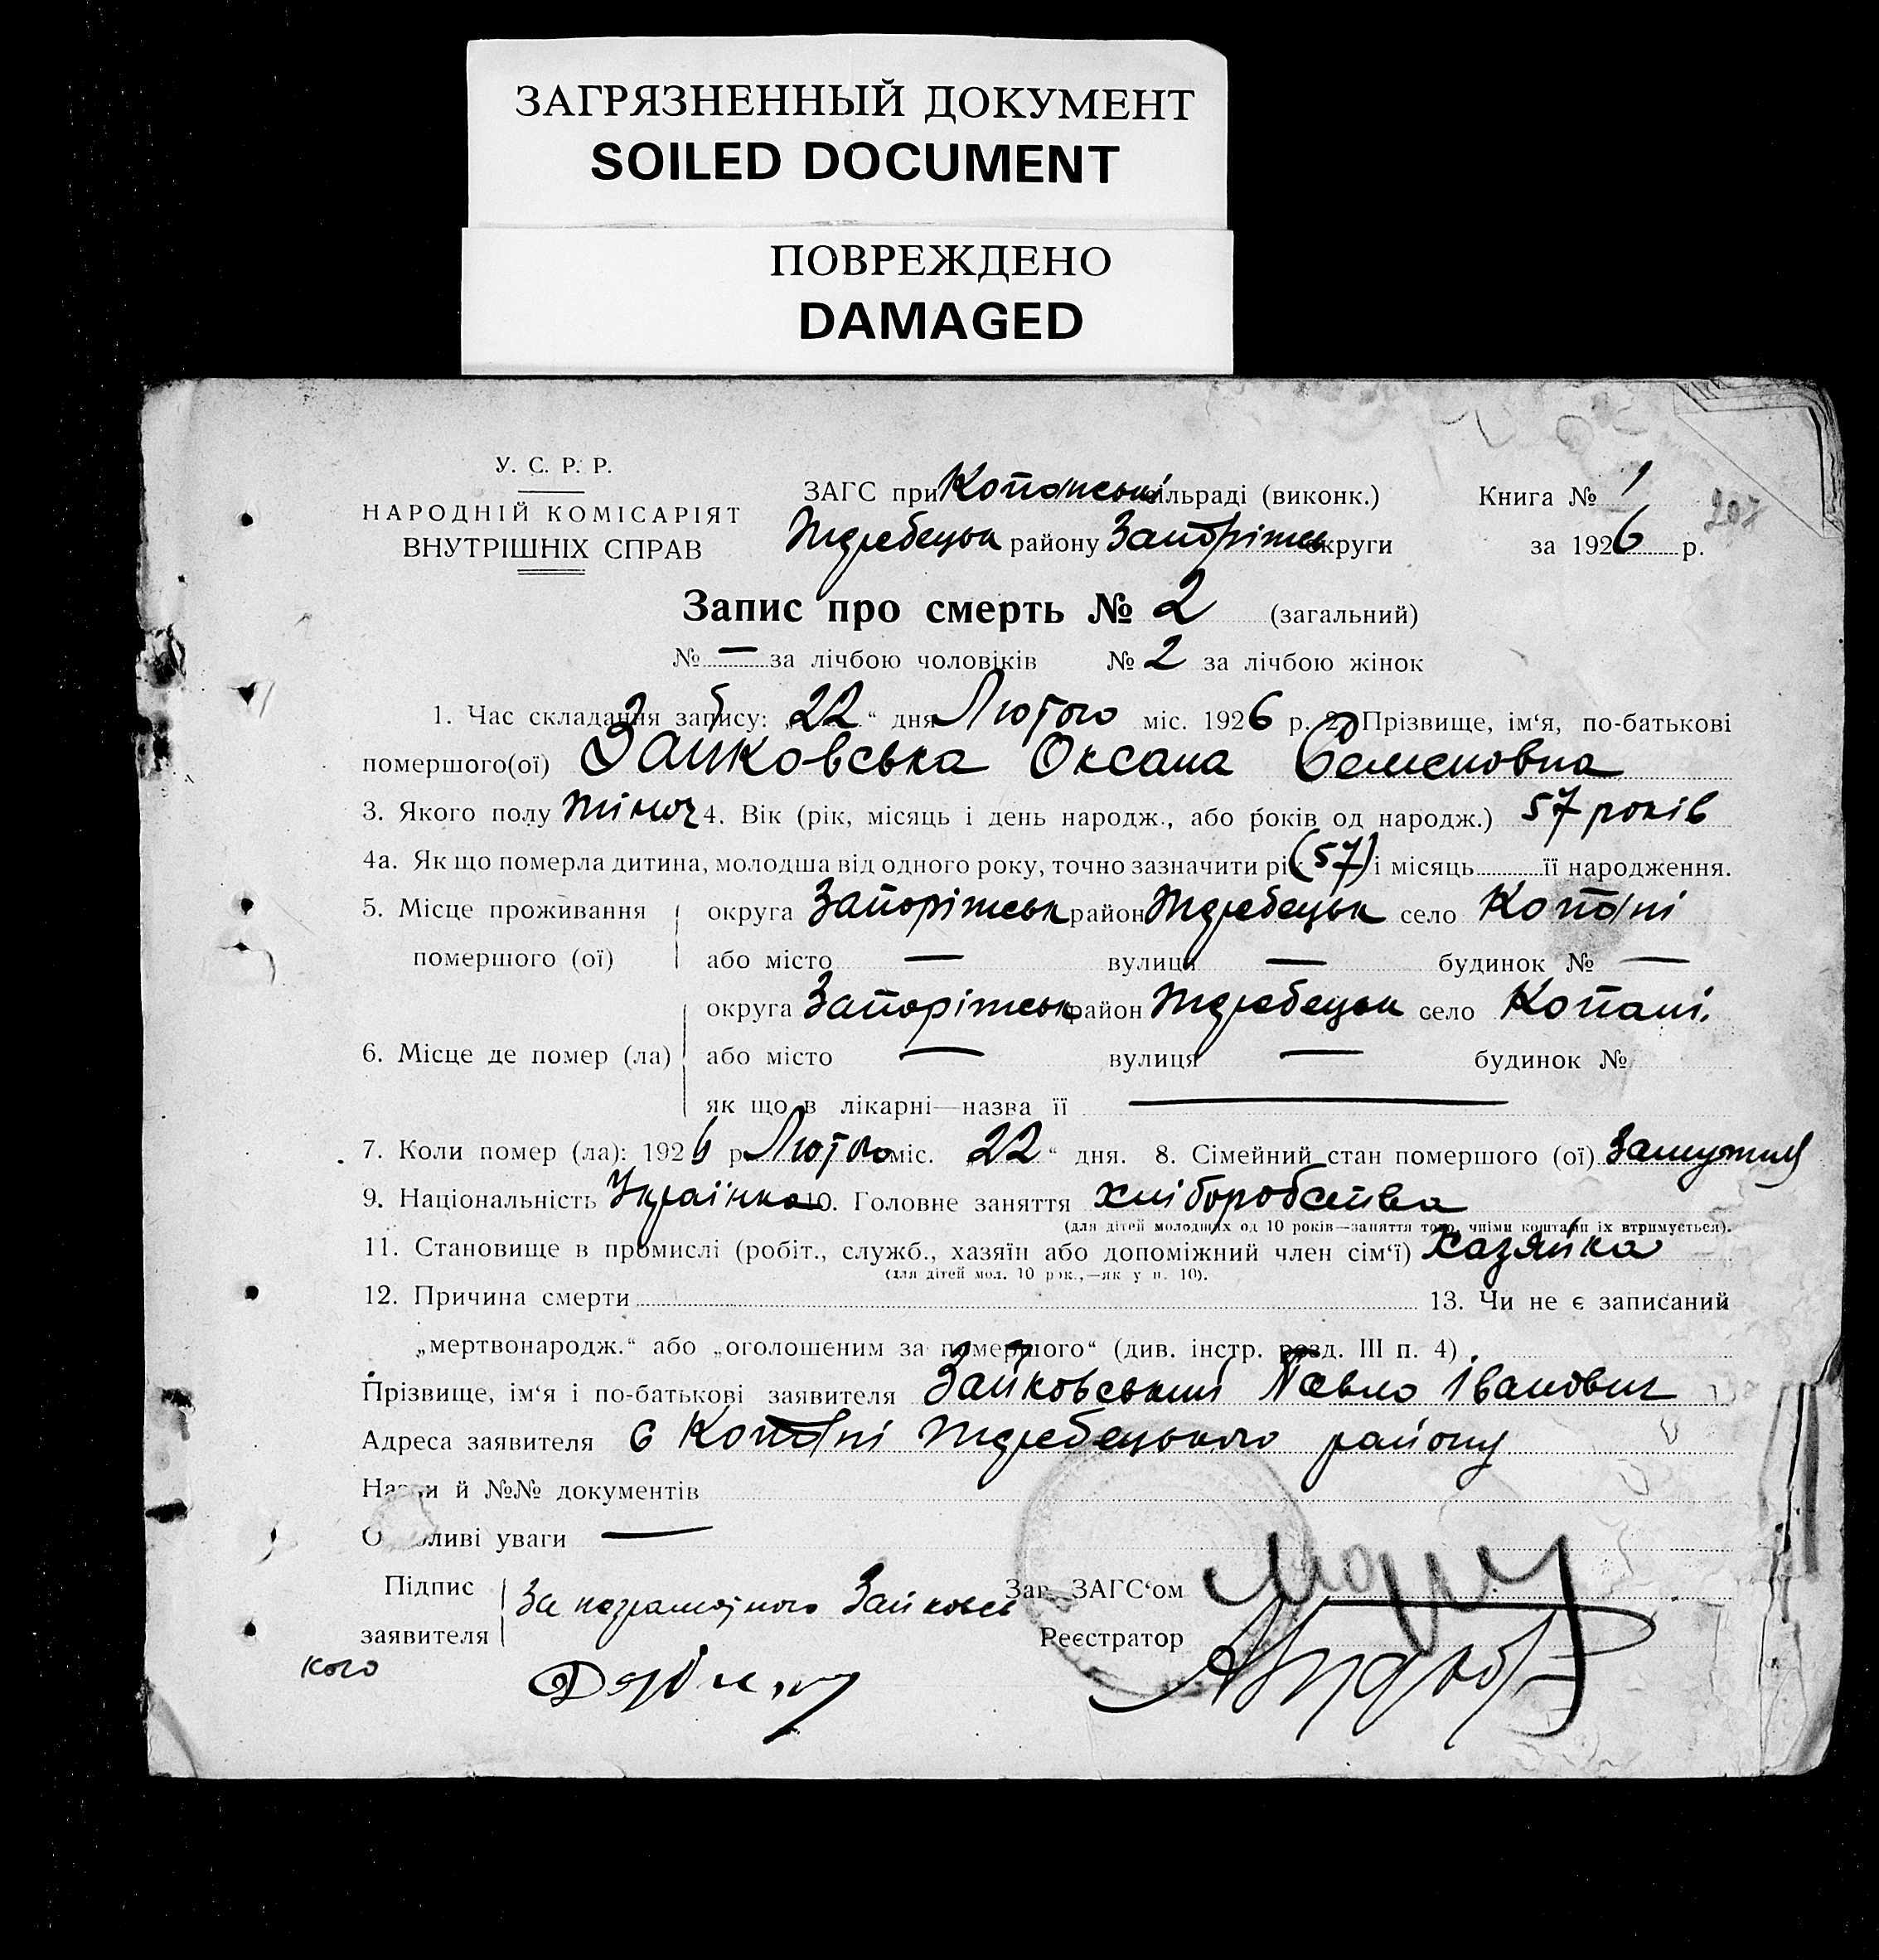 ЗАГРЯЗНЕННЫЙ ДОКУМЕНТ
SOILED DOCUMENT
ПОВРЕЖДЕНО
DAMAGED
У. С. Р. Р.
НАРОДНІЙ КОМІСАРІЯТ
ВНУТРІШНІХ СПРАВ
ЗАГС при Копанські сільраді (виконк.)
Жеребецьк району Запоріжськ округи
Книга № 1
207
за 1926 р.
Запис про смерть № 2 (загальний)
№ — за лічбою чоловіків № 2 за лічбою жінок
1. Час складання запису: „22“ дня Лютого міс. 1926 р. 2. Прізвище, ім‘я, по-батькові
помершого(ої) Зайковська Оксана Семеновна
3. Якого полу жіноч 4. Вік (рік, місяць і день народж., або років од народж.) 57 років
4а. Як що померла дитина, молодша від одного року, точно зазначити рік (57) і місяць її народження.
5. Місце проживання помершого (ої) округа Запоріжськ район Жеребецьк село Копані
або місто — вулиця — будинок № —
6. Місце де помер (ла) округа Запоріжськ район Жеребецьк село Копані.
або місто — вулиця — будинок №
як що в лікарні—назва її —
7. Коли помер (ла): 1926 р. Лютого міс. „22“ дня. 8. Сімейний стан помершого (ої) Замужня
9. Національність Українка 10. Головне заняття хліборобства
(для дітей молодших од 10 років—заняття того, чиїми коштами їх втримується).
11. Становище в промислі (робіт., служб., хазяїн або допоміжний член сім‘ї) Хазяйка
(для дітей мол. 10 рок.,—як у п. 10).
12. Причина смерти 13. Чи не є записаний
„мертвонародж.“ або „оголошеним за помершого“ (див. інстр. розд. III п. 4)
Прізвище, ім‘я і по-батькові заявителя Зайковський Павло Іванович
Адреса заявителя с Копані Жеребецького району
Назви й №№ документів
Особливі уваги —
Підпис заявителя За неграмотного Зайковсь
кого
Зав. ЗАГС‘ом
Реєстратор